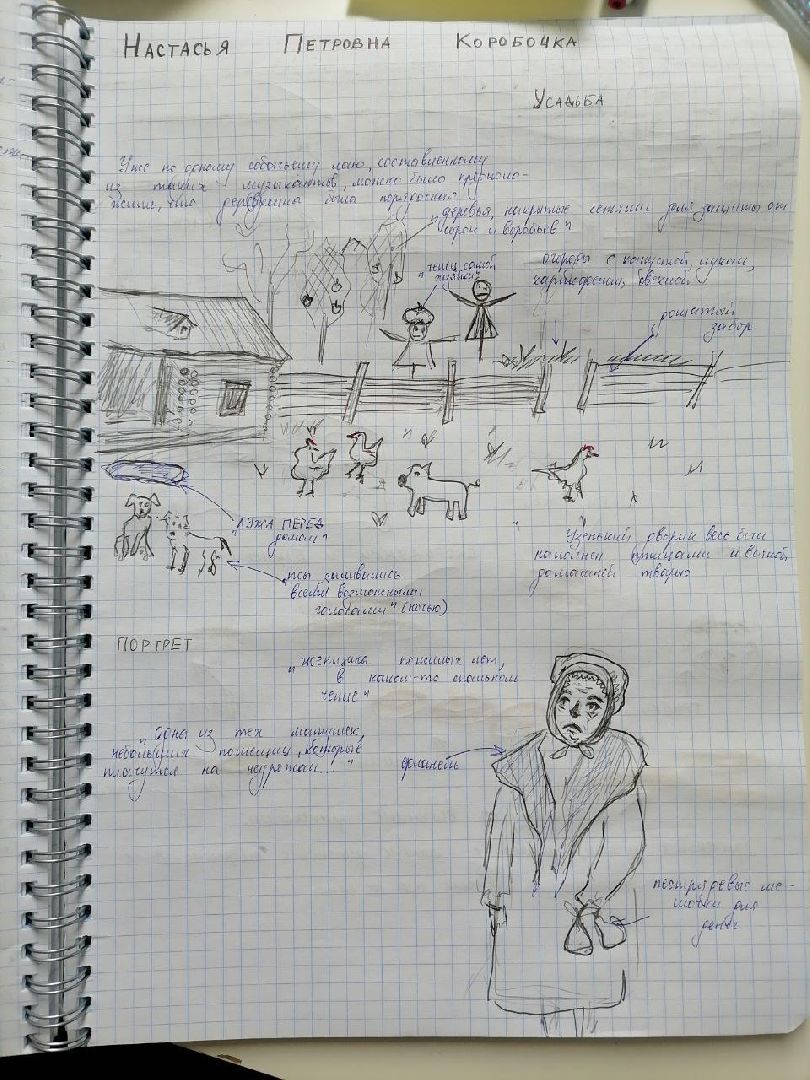 НАСТАСЬЯ ПЕТРОВНА КОРОБОЧКА
УСАДЬБА
"Уже по одному собачьему лаю, составленному
из таких музыкантов, можно было предполо-
жить, что деревушка была порядочная"
"деревья, накрытые сетями для защиты от
сорок и воробьев"
"чепец самой
хозяйки"
огороды с капустой, луком,
картофелем, свеклой
дощатый
забор
"ЛУЖА ПЕРЕД
домом"
"псы заливались
всеми возможными
голосами" (ночью)
"Узенький дворик весь был
наполнен птицами и всякой
домашней тварью
ПОРТРЕТ
"хозяйка пожилых лет,
в каком-то спальном
чепце"
"одна из тех матушек,
небольших помещиц, которые
плачутся на неурожаи..."
фланель
пестрядевые ме-
шочки для
денег